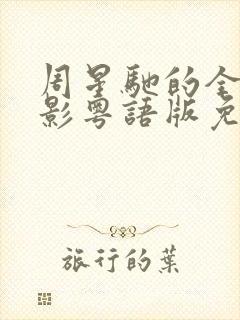 周星馳的全
影粵語版免
旅行的葉